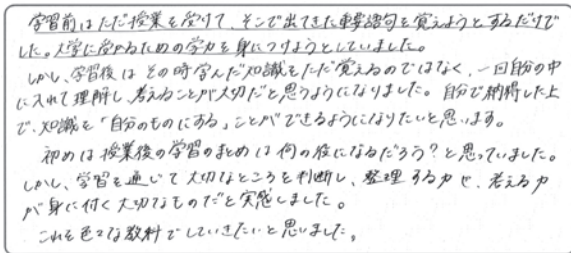 学習前はただ授業を受けて、そこで出てきた重要語句を覚えようとするだけで
した。大学に受かるための学力を身につけようとしていました。
しかし、学習後はその時学んだ知識をただ覚えるのではなく、一回自分の中
に入れて理解し、考えることが大切だと思うようになりました。自分で納得した上
で、知識を「自分のものにする」ことができるようになりたいと思います。
初めは授業後の学習のまとめは何の役になるだろう？と思っていました。
しかし、学習を通じて大切なところを判断し、整理する力や、考える力
が身に付く大切なものだと実感しました。
これを色々な教科でしていきたいと思いました。